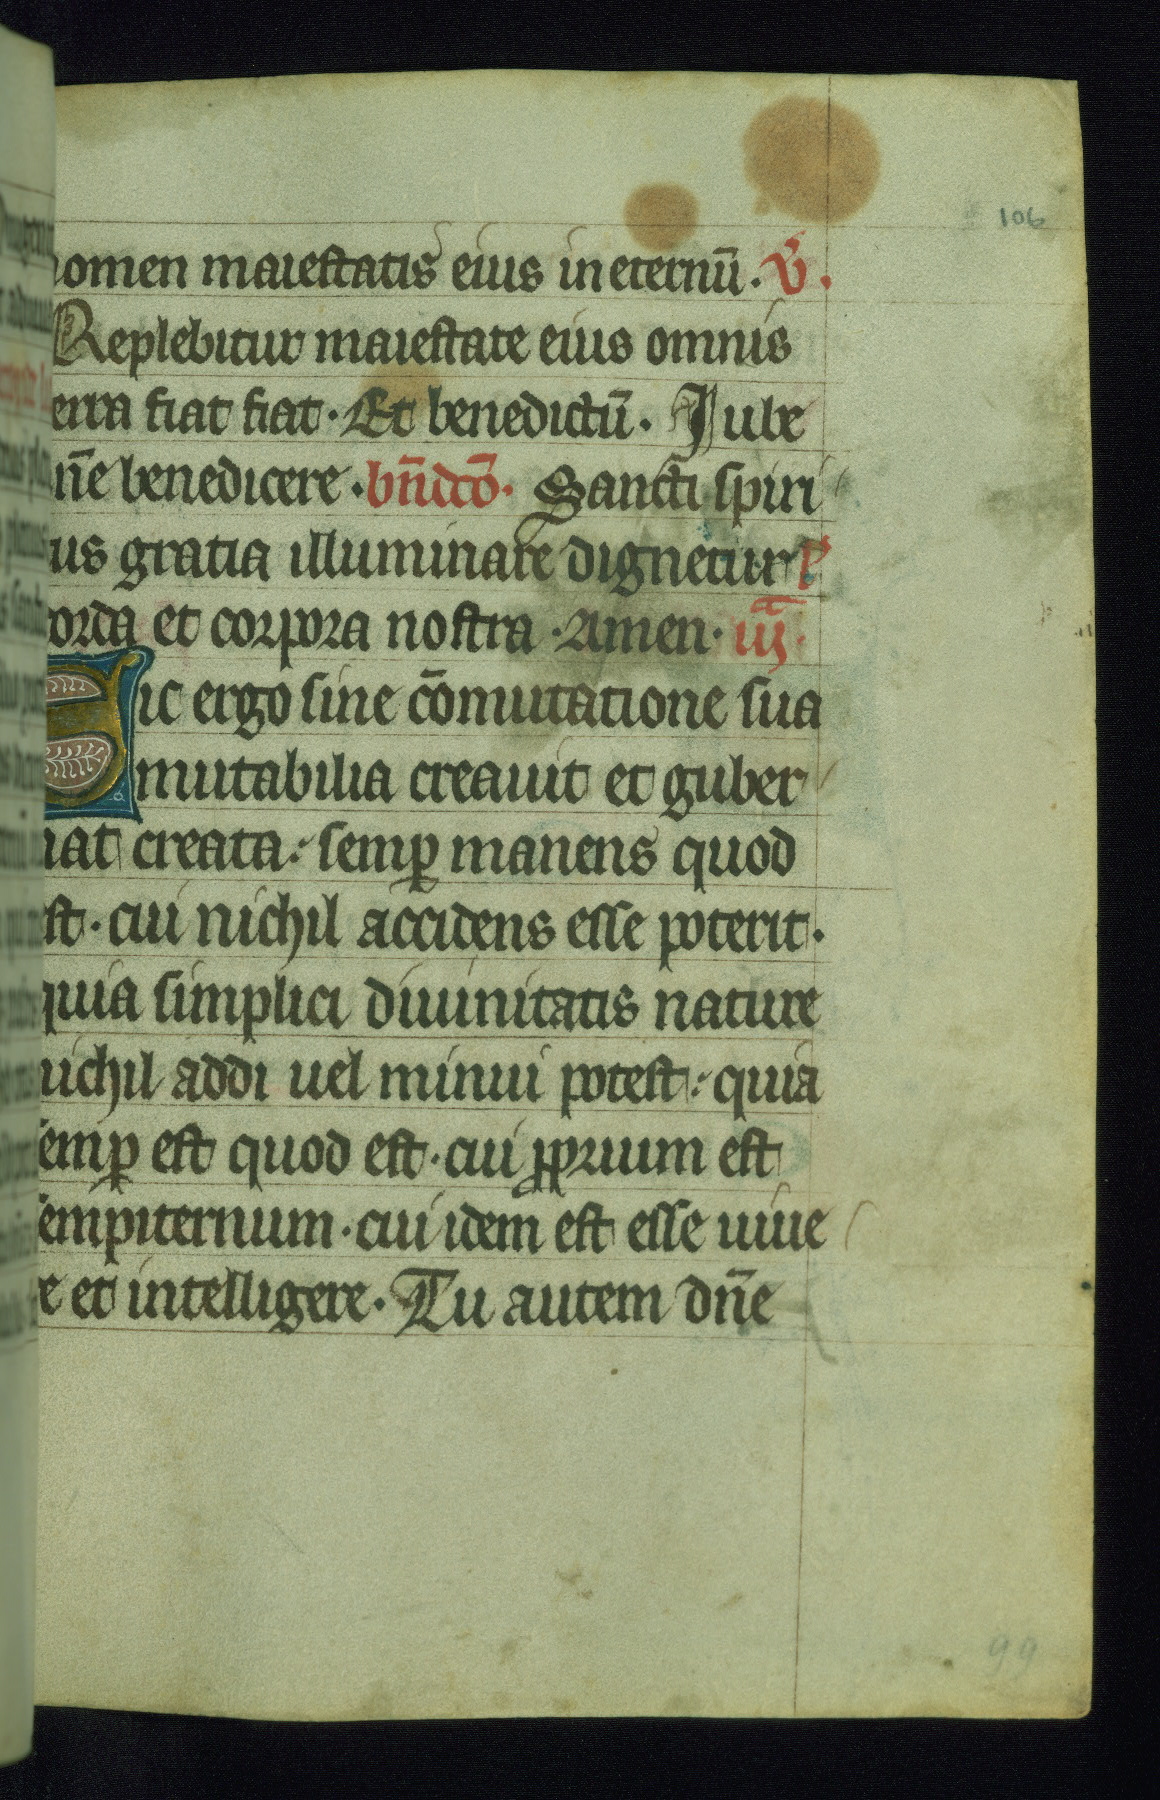 106
nomen maiestatis eius in eternū. V̄.
Replebitur maiestate eius omnis
erra fiat fiat. Et benedictū. Iube
n̄e benedicere. bn̄dcō. Sancti spiri
us gratia illuminare dignetur
orda et corpora nostra. Amen. iij.
Sic ergo sine cōmutatione sua
mutabilia creauit et guber
nat creata: semp̲ manens quod
est. cui nichil accidens esse poterit.
quia simplici diuinitatis nature
nichil addi uel minui potest: quia
semp̲ est quod est. cui pprium est
sempiternum. cui idem est esse uiue
e et intelligere. Tu autem dn̄e
99